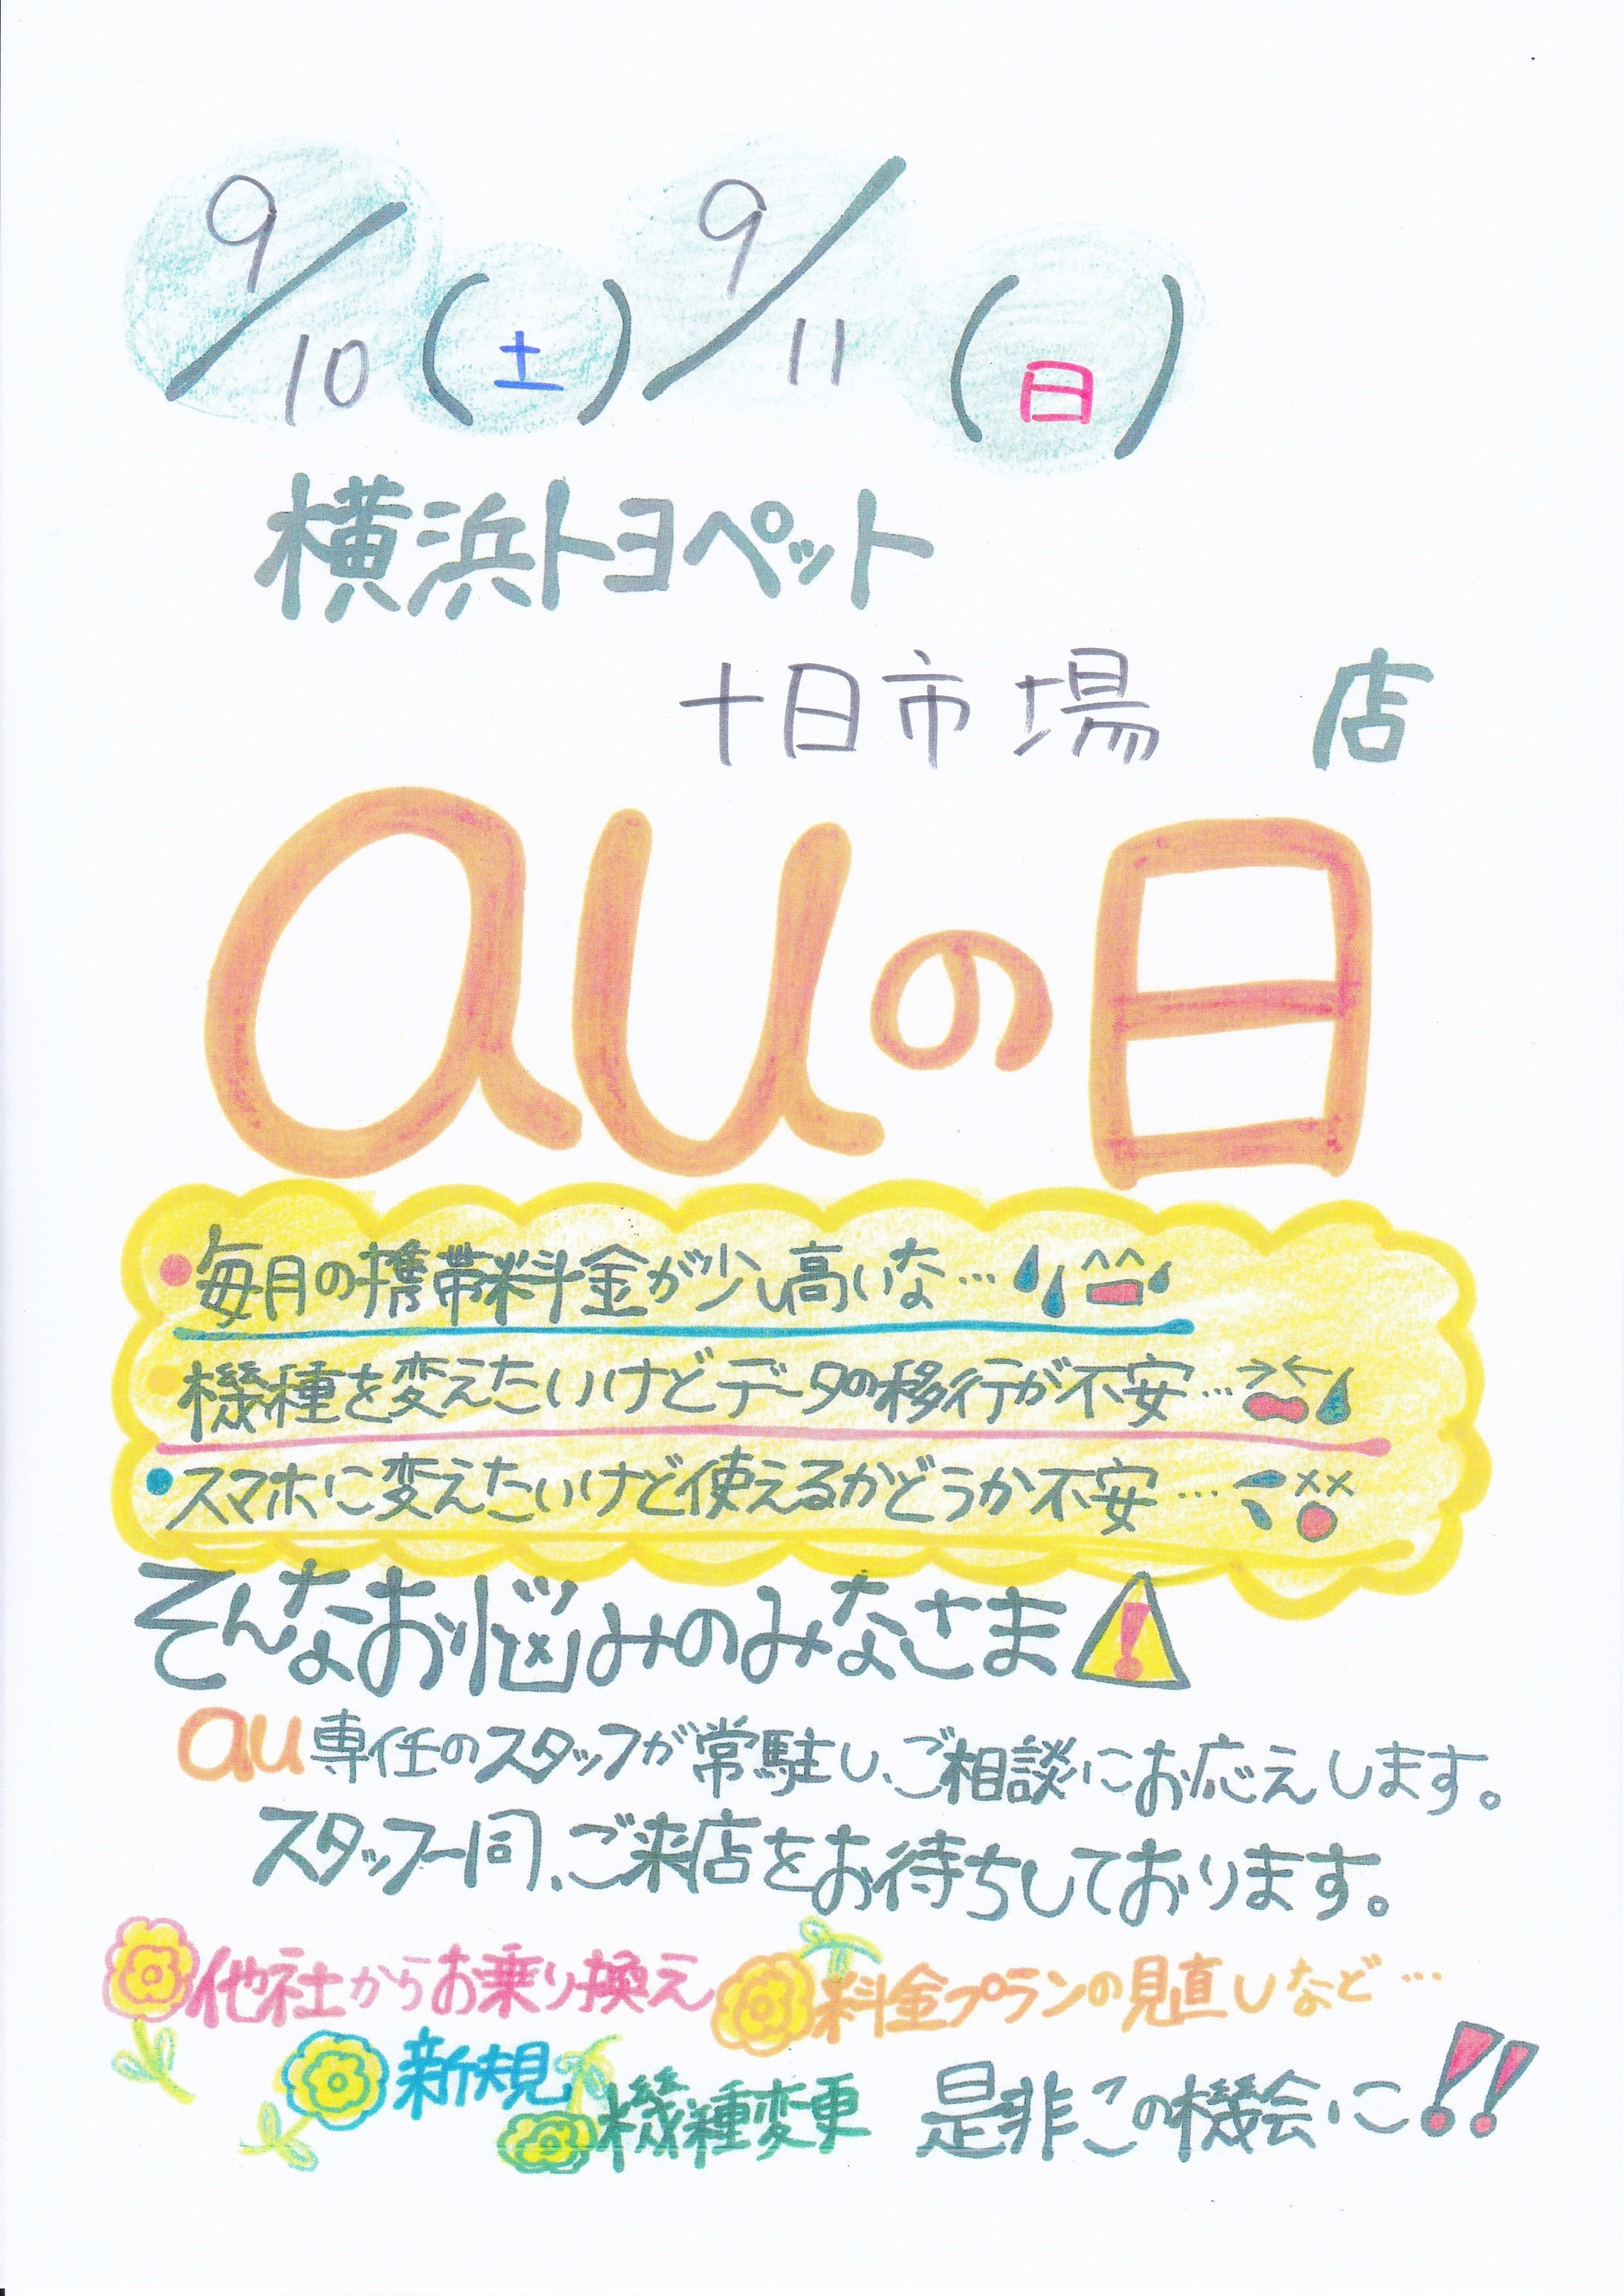 9/10(土) 9/11(日)
横浜トヨペット
十日市場 店
auの日
●毎月の携帯料金が少し高いな…
●機種を変えたいけどデータの移行が不安…
●スマホに変えたいけど使えるかどうか不安…
そんなお悩みのみなさま
au専任のスタッフが常駐し、ご相談にお応えします。
スタッフ一同、ご来店をお待ちしております。
他社からお乗り換え 料金プランの見直しなど…
新規 機種変更 是非この機会に!!